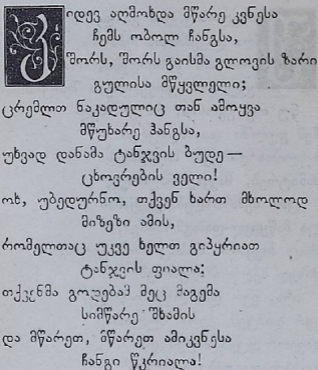 კიდევ აღმოხდა მწარე კვნესა
ჩემს ობოლ ჩანგსა,
შორს, შორს გაისმა გლოვის ზარი
გულისა მწყვლელი;
ცრემლთ ნაკადულიც თან ამოყვა
მწუხარე ჰანგსა,
უხვად დანამა ტანჯვის ბუდე—
ცხოვრების ველი!
ოხ, უბედურნო, თქვენ ხართ მხოლოდ
მიზეზი ამის,
რომელთაც უკვე ხელთ გიპყრიათ
ტანჯვის ფიალა;
თქვენმა გოდებამ მეც მაგემა
სიმწარე შხამის
და მწარეთ, მწარეთ ამიკვნესა
ჩანგი წკრიალა!